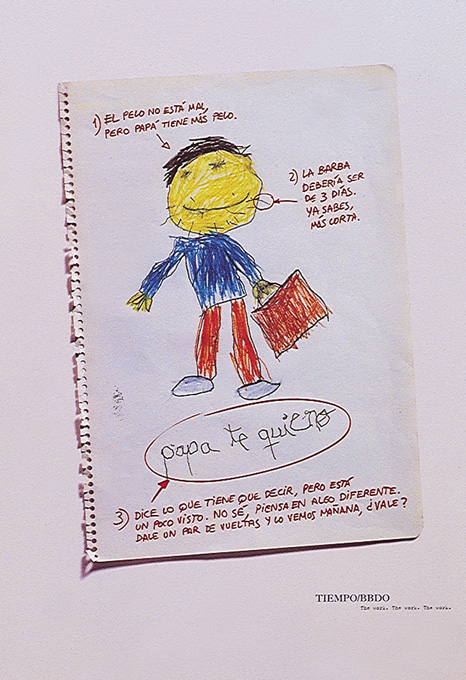 1) EL PELO NO ESTÁ MAL,
PERO PAPÁ TIENE MÁS PELO.
2) LA BARBA
DEBERÍA SER
DE 3 DÍAS.
YA SABES,
MÁS CORTA.
papa te quiero
3) DICE LO QUE TIENE QUE DECIR, PERO ESTÁ
UN POCO VISTO. NO SÉ, PIENSA EN ALGO DIFERENTE.
DALE UN PAR DE VUELTAS Y LO VEMOS MAÑANA, ¿VALE?
TIEMPO/BBDO
The work. The work. The work.